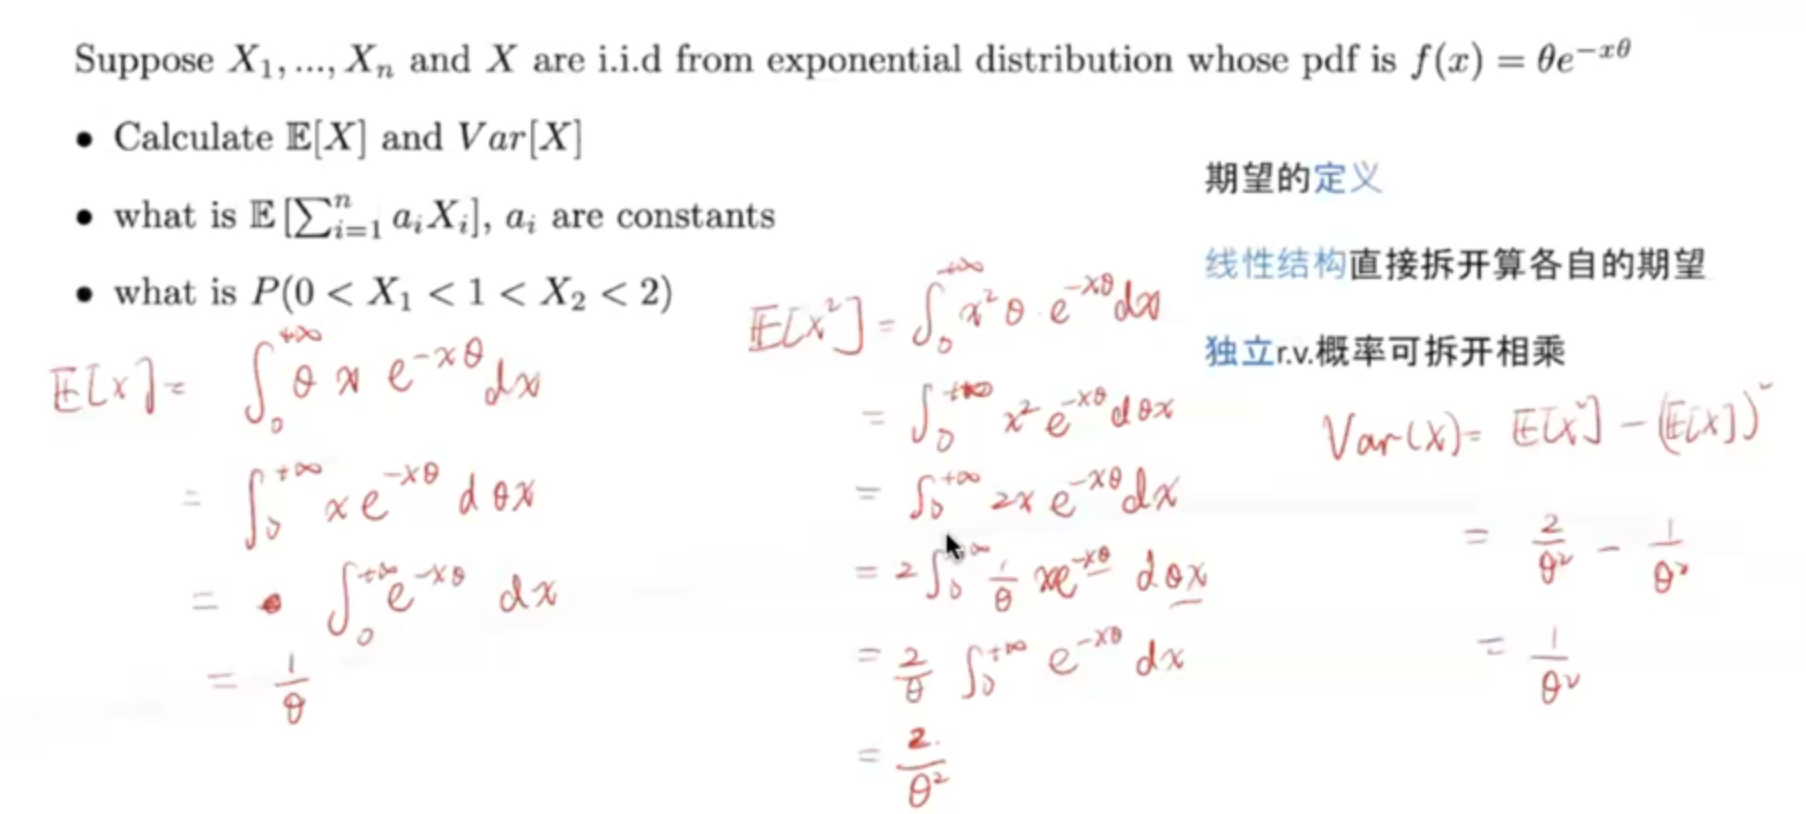 Suppose X₁, ..., Xₙ and X are i.i.d from exponential distribution whose pdf is f(x) = θe^{−xθ}
• Calculate 𝔼[X] and Var[X]
• what is 𝔼[∑_{i=1}^{n} aᵢXᵢ], aᵢ are constants
• what is P(0 < X₁ < 1 < X₂ < 2)
期望的定义
线性结构直接拆开算各自的期望
独立r.v.概率可拆开相乘
E[x] = ∫₀^{+∞} θ x e^{−xθ} dx
= ∫₀^{+∞} x e^{−xθ} d θx
= ∫₀^{+∞} e^{−xθ} dx
= 1/θ
E[x²] = ∫₀^{+∞} x² θ · e^{−xθ} dx
= ∫₀^{+∞} x² e^{−xθ} d θx
= ∫₀^{+∞} 2x e^{−xθ} dx
= 2 ∫₀^{+∞} 1/θ x e^{−xθ} d θx
= 2/θ ∫₀^{+∞} e^{−xθ} dx
= 2/θ²
Var(X) = E[X²] − (E[X])²
= 2/θ² − 1/θ²
= 1/θ²